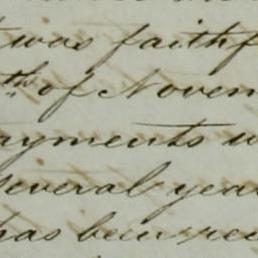 was faithf
th of Novem
ayments w
several yea
has been re